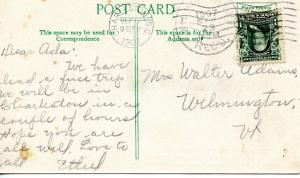 POST CARD
This space may be used for
Correspondence
This space is for
Address only
SEP
9 PM
1907
1907
REC'D.
Dear Ada:
We have
had a fine trip.
We will be in
Charleston in a
couple of hours
Hope you are
all well. Love to
all Ethel
Mrs Walter Adams,
Wilmington,
Vt